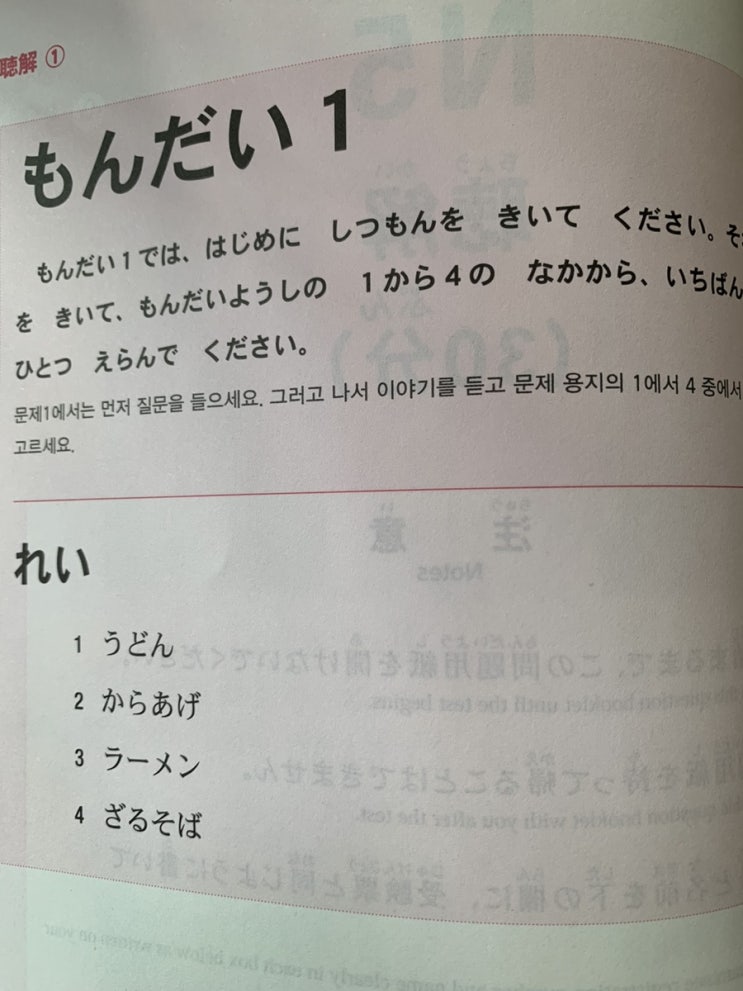 聴解 ①
もんだい 1
もんだい1では、はじめに しつもんを きいて ください。そ
を きいて、もんだいようしの 1から4の なかから、いちばん
ひとつ えらんで ください。
문제1에서는 먼저 질문을 들으세요. 그러고 나서 이야기를 듣고 문제 용지의 1에서 4 중에서
고르세요.
れい
1 うどん
2 からあげ
3 ラーメン
4 ざるそば